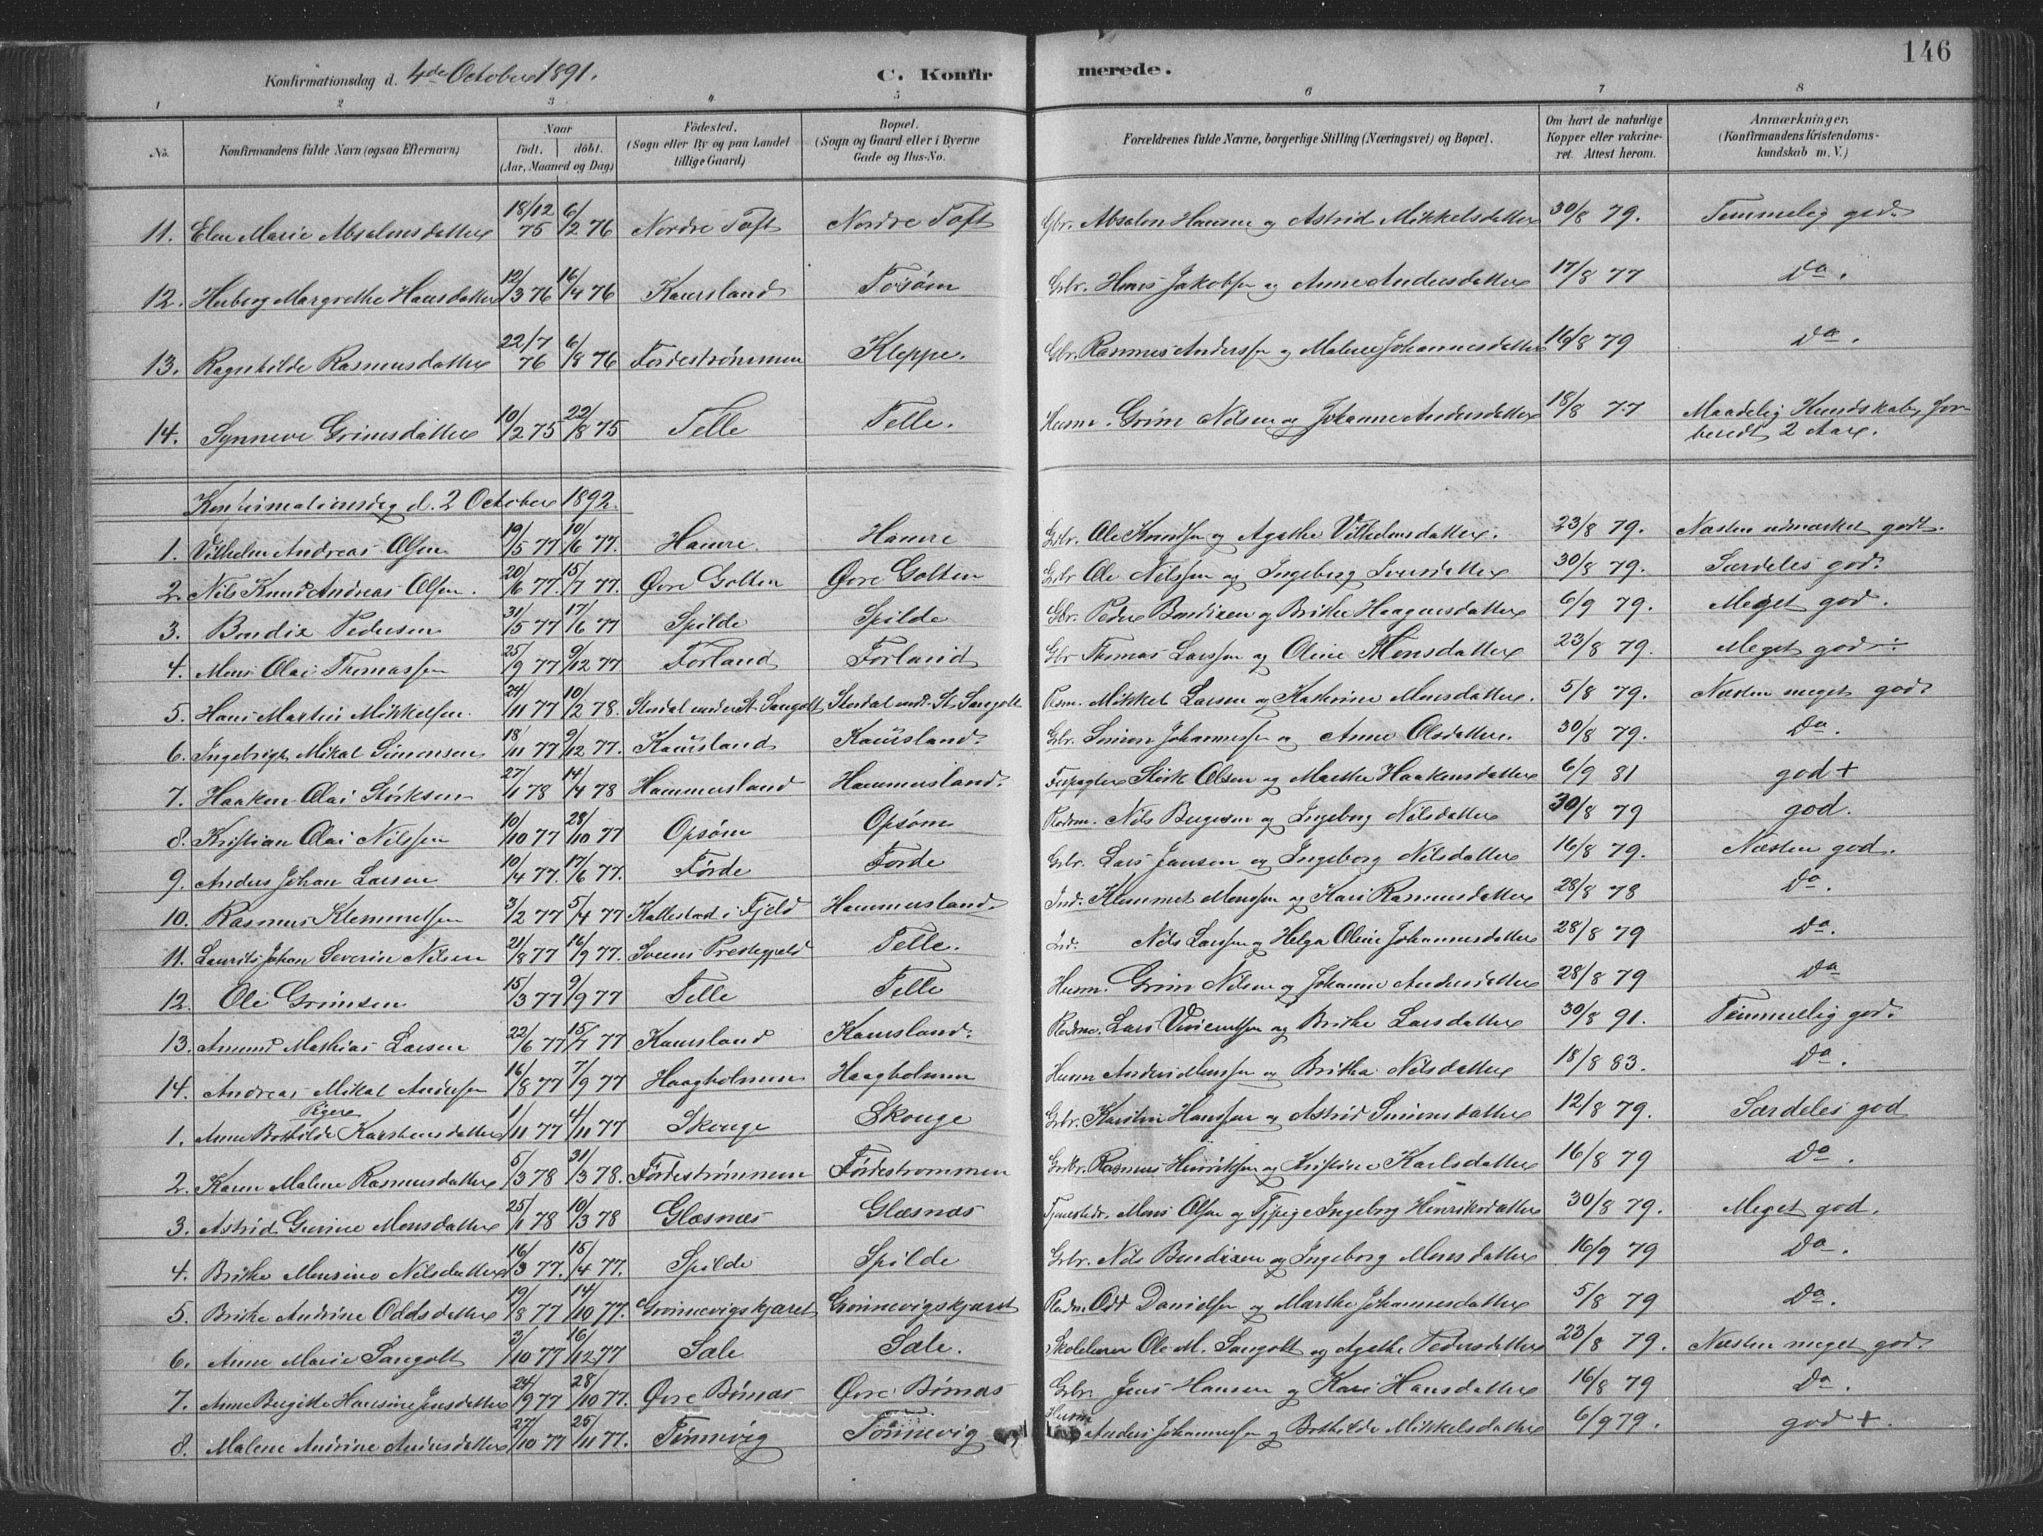 146
Konfirmationsdag d. 4de October 1891.
C. Konfirmerede.
1 2 3 4 5 6 7 8
No. Konfirmandens fulde Navn (ogsaa Efternavn) Naar födt. döbt. (Aar, Maaned og Dag) Födested. (Sogn eller By og paa Landet tillige Gaard) Bopæl. (Sogn og Gaard eller i Byerne Gade og Hus-No. Forældrenes fulde Navne, borgerlige Stilling (Næringsvei) og Bopæl. Om havt de naturlige Kopper eller vakcineret. Attest herom. Anmærkninger. (Konfirmandens Kristendomskundskab m. V.)
11. Elen Marie Absalonsdatter 18/12 75 6/2 76 Nordre Toft Nordre Toft Gbr. Absalon Hansen og Astrid Mikkelsdatter 30/8 79. Temmelig god.
12. Herborg Margrethe Hansdatter 12/3 76 16/4 76 Kaursland Tosøm Gbr. Hans Jakobsen og Anne Andersdatter 17/8 77 do.
13. Ragnhilde Rasmusdatter 22/7 76 6/8 76 Fordestrømmen Kleppe. Gbr. Rasmus Anderssen og Malene Johannesdatter 16/8 79 do.
14. Synneve Grimsdatter 10/2 75 22/8 75 Telle Telle. Husm. Grim Nilsen og Johanne Andersdatter 18/8 77 Maadelig Kundskab, forberedt 2 Aar.
Konfirmationsdag d. 2 October 1892.
1. Vilhelm Andreas Olsen 19/5 77 10/6 77. Hamre. Hamre Gbr. Ole Knudsen og Agathe Vilhelmsdatter. 23/8 79. Næsten udmærket godt.
2. Nils Knud Andreas Olsen. 20/6 77. 15/7 77. Øvre Golten Øvre Golten Gbr Ole Nilssen og Ingeborg Iversdatter 30/8 79. Særdeles god.
3. Bendix Pedersen 31/5 77 17/6 77 Spilde Spilde Gbr. Peder Bendixen og Brithe Haagensdatter 6/9 79. Meget god.
4. Mons Olai Thomassen 25/9 77 9/12 77 Forland Forland Gbr Thomas Larssen og Oline Monsdatter 23/8 79. Meget god
5. Hans Martin Mikkelsen. 24/11 77 10/2 78. Stordal under St. Sangolt Stordal und. St. Sangolt Mikkel Larsen og Kathrine Monsdatter. 5/8 79. Næsten meget god
6. Ingebrigt Mikal Simonsen 18/11 77 9/12 77. Kaursland Kaursland. Gbr. Simon Johannessen og Anne Olsdatter. 30/8 79. do.
7. Haakon Olai Størksen 27/1 78 14/4 78 Hammersland Hammersland. Størk Olsen og Marthe Haakensdatter 6/9 81 god +
8. Kristian Olai Nilssen 10/10 77 28/10 77 Opsøm Opsøm Nils Bergesen og Ingeborg Nilsdatter 30/8 79 god.
9. Anders Johan Larsen 10/4 77. 17/6 77. Førde Førde Gbr. Lars Jansen og Ingeborg Nilsdatter 16/8 79. Næsten god.
10. Rasmus Klemmetsen 3/2 77 5/4 77 Kallestad i Fjeld Hammersland. Ind. Klemmet Monssen og Kari Rasmusdatter 28/8 78 do.
11. Laurits Johan Severin Nilsen 21/8 77 16/9 77. Sveens Prestegjeld Telle. Ind. Nils Larssen og Helga Oline Johannesdatter 28/8 79 do.
12. Ole Grimsen 15/3 77 9/9 77 Telle Telle Husm. Grim Nilsen og Johanne Andersdatter 28/8 79 do
13. Amund Mathias Larsen 22/6 77 15/7 77 Kaursland Kaursland. Lars Vincentsen og Brithe Larsdatter 30/8 91. Temmelig god.
14. Andreas Mikal Andersen 16/8 77 7/9 77 Haagholmen Haagholmen Husm Anders Monssen og Britha Nilsdatter 18/8 83. do.
Piger
1. Anne Bothilde Karstensdatter 1/11 77 4/11 77 Skouge Skouge Gbr. Karsten Hanssen og Astrid Simonsdatter 12/8 79. Særdeles god
2. Karen Malene Rasmusdatter 5/3 78 31/3 78. Førdestrømmen Førdestrømmen Gbr. Rasmus Henriksen og Kristine Karlsdatter 16/8 79 do.
3. Astrid Gurine Monsdatter 25/1 78 10/3 78 Glæsnæs Glæsnæs Mons Olsen og Pige Ingeborg Henriksdatter 30/8 79. Meget god.
4. Brithe Monsine Nilsdatter 16/3 77. 15/4 77. Spilde Spilde Gbr. Nils Bendixen og Ingeborg Monsdatter 16/9 79 do.
5. Brithe Andrine Oddsdatter 19/8 77 14/10 77. Grønnevigskjæret Grønnevigskjæret Odd Danielsen og Marthe Johannesdatter 5/8 79 do.
6. Anne Marie Sangolt 3/10 77 16/12 77 Sæle Sæle. Skolelærer Ole M. Sangolt og Agathe Pedersdatter 23/8 79. Næsten meget god
7. Anne Birgitte Hansine Jensdatter 24/9 77 28/10 77. Øvre Børnæs Øvre Børnæs Gbr. Jens Hansen og Kari Hansdatter 16/8 79 do.
8. Malene Andrine Andersdatter 27/10 77 25/11 77. Tønnevig Tønnevig Husm Anders Johannessen og Bothilde Mikkelsdatter 6/9 79. god +.